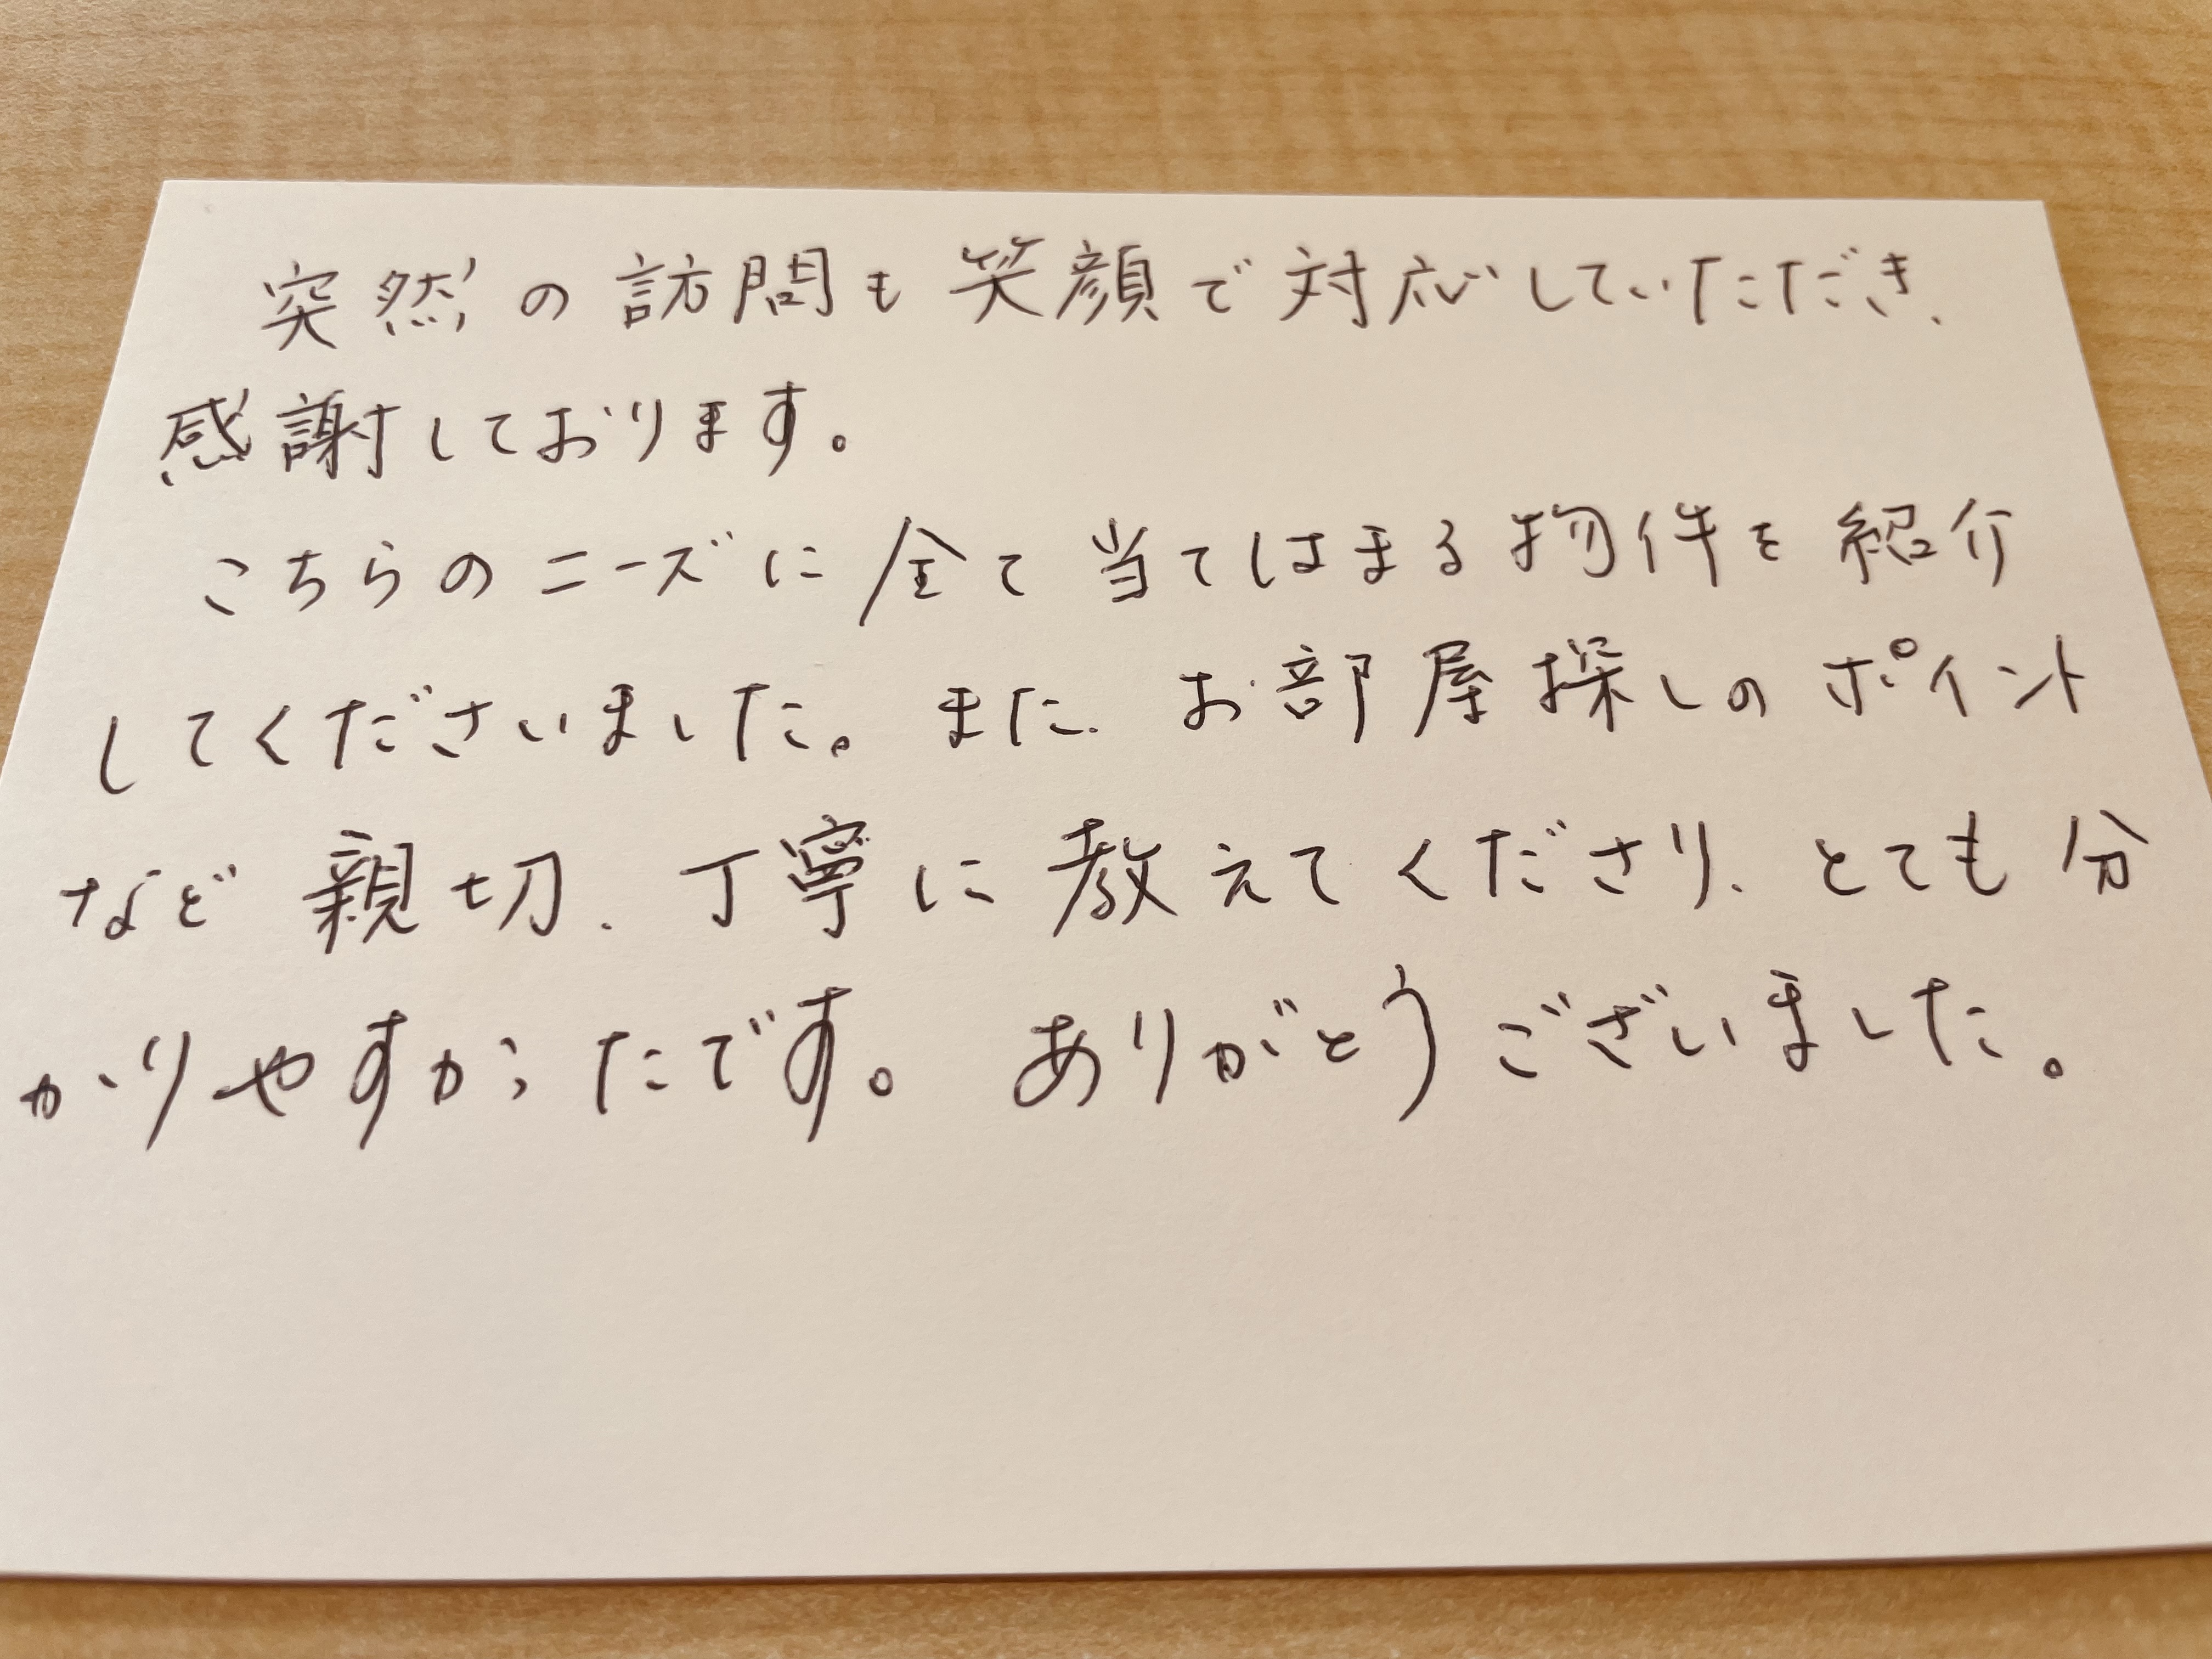 突然の訪問も笑顔で対応していただき、
感謝しております。
こちらのニーズに全て当てはまる物件を紹介
してくださいました。また、お部屋探しのポイント
など親切、丁寧に教えてくださり、とても分
かりやすかったです。ありがとうございました。